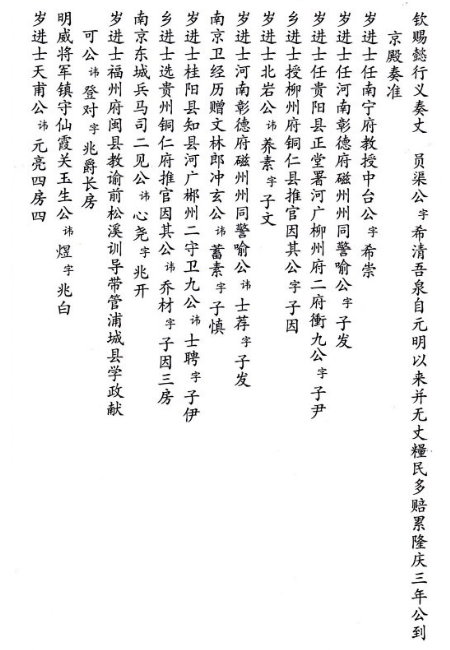 钦赐懿行义奏丈　员渠公字希清吾泉自元明以来并无丈糧民多赔累隆庆三年公到
京殿奏准
岁进士任南宁府教授中台公字希崇
岁进士任河南彰德府磁州州同警喻公字子发
岁进士任贵阳县正堂署河广柳州府二府衝九公字子尹
乡进士授柳州府铜仁县推官因其公字子因
岁进士北岩公讳养素字子文
岁进士河南彰德府磁州州同警喻公讳士荐字子发
南京卫经历赠文林郎冲玄公讳蓄素字子慎
岁进士桂阳县知县河广郴州二守卫九公讳士聘字子伊
乡进士选贵州铜仁府推官因其公讳乔材字子因三房
南京东城兵马司二见公讳心尧字兆开
岁进士福州府闽县教谕前松溪训导带管浦城县学政献
可公讳登对字兆爵长房
明威将军镇守仙霞关玉生公讳煜字兆白
岁进士天甫公讳元亮四房四